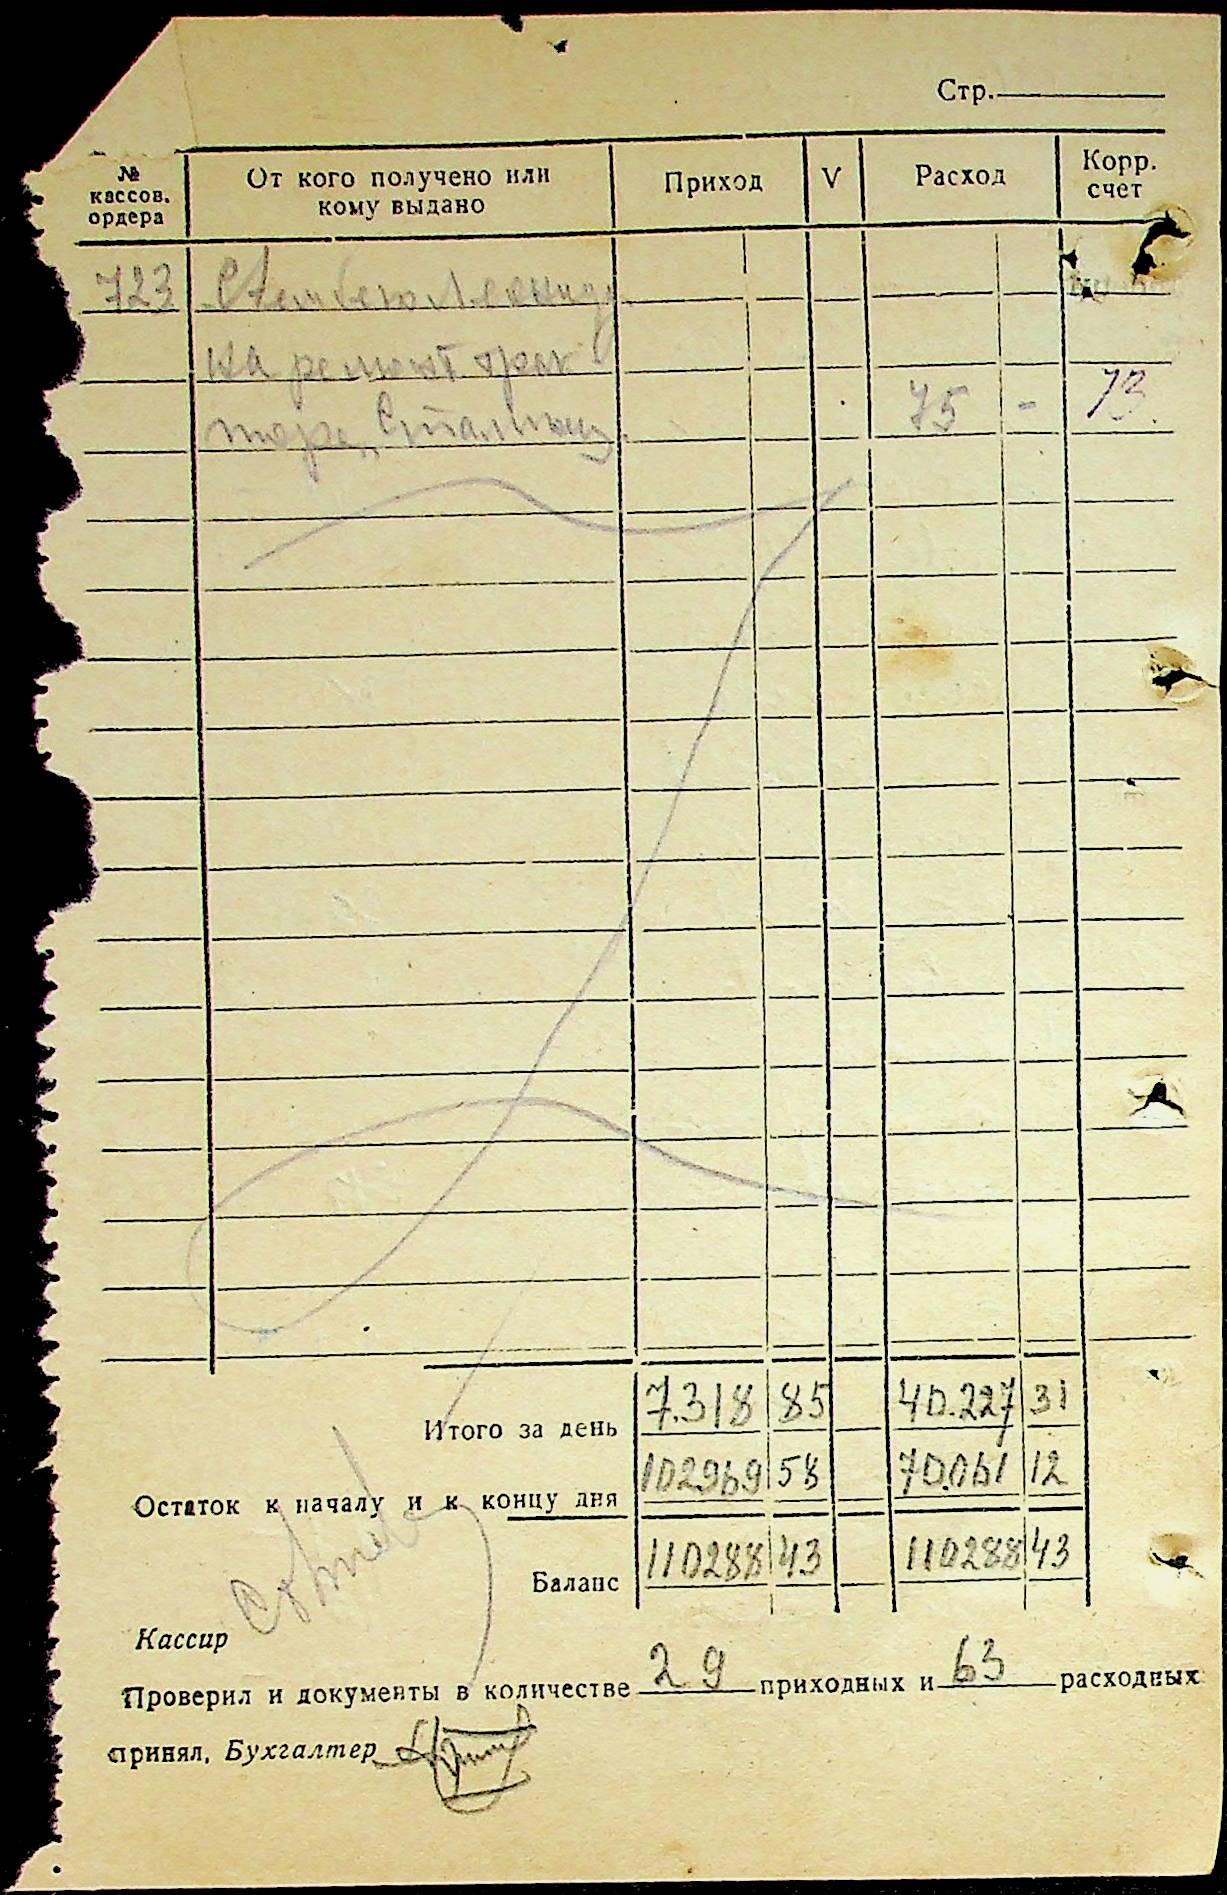 Стр.
№ кассов. ордера От кого получено или кому выдано Приход V Расход Корр. счет
723
на ремонт трак
тора 75 - 73
Итого за день 7.318 85 40.227 31
Остаток к началу и к концу дня 102969 58 70.061 12
Баланс 110288 43 110288 43
Кассир
Проверил и документы в количестве 29 приходных и 63 расходных
принял, Бухгалтер